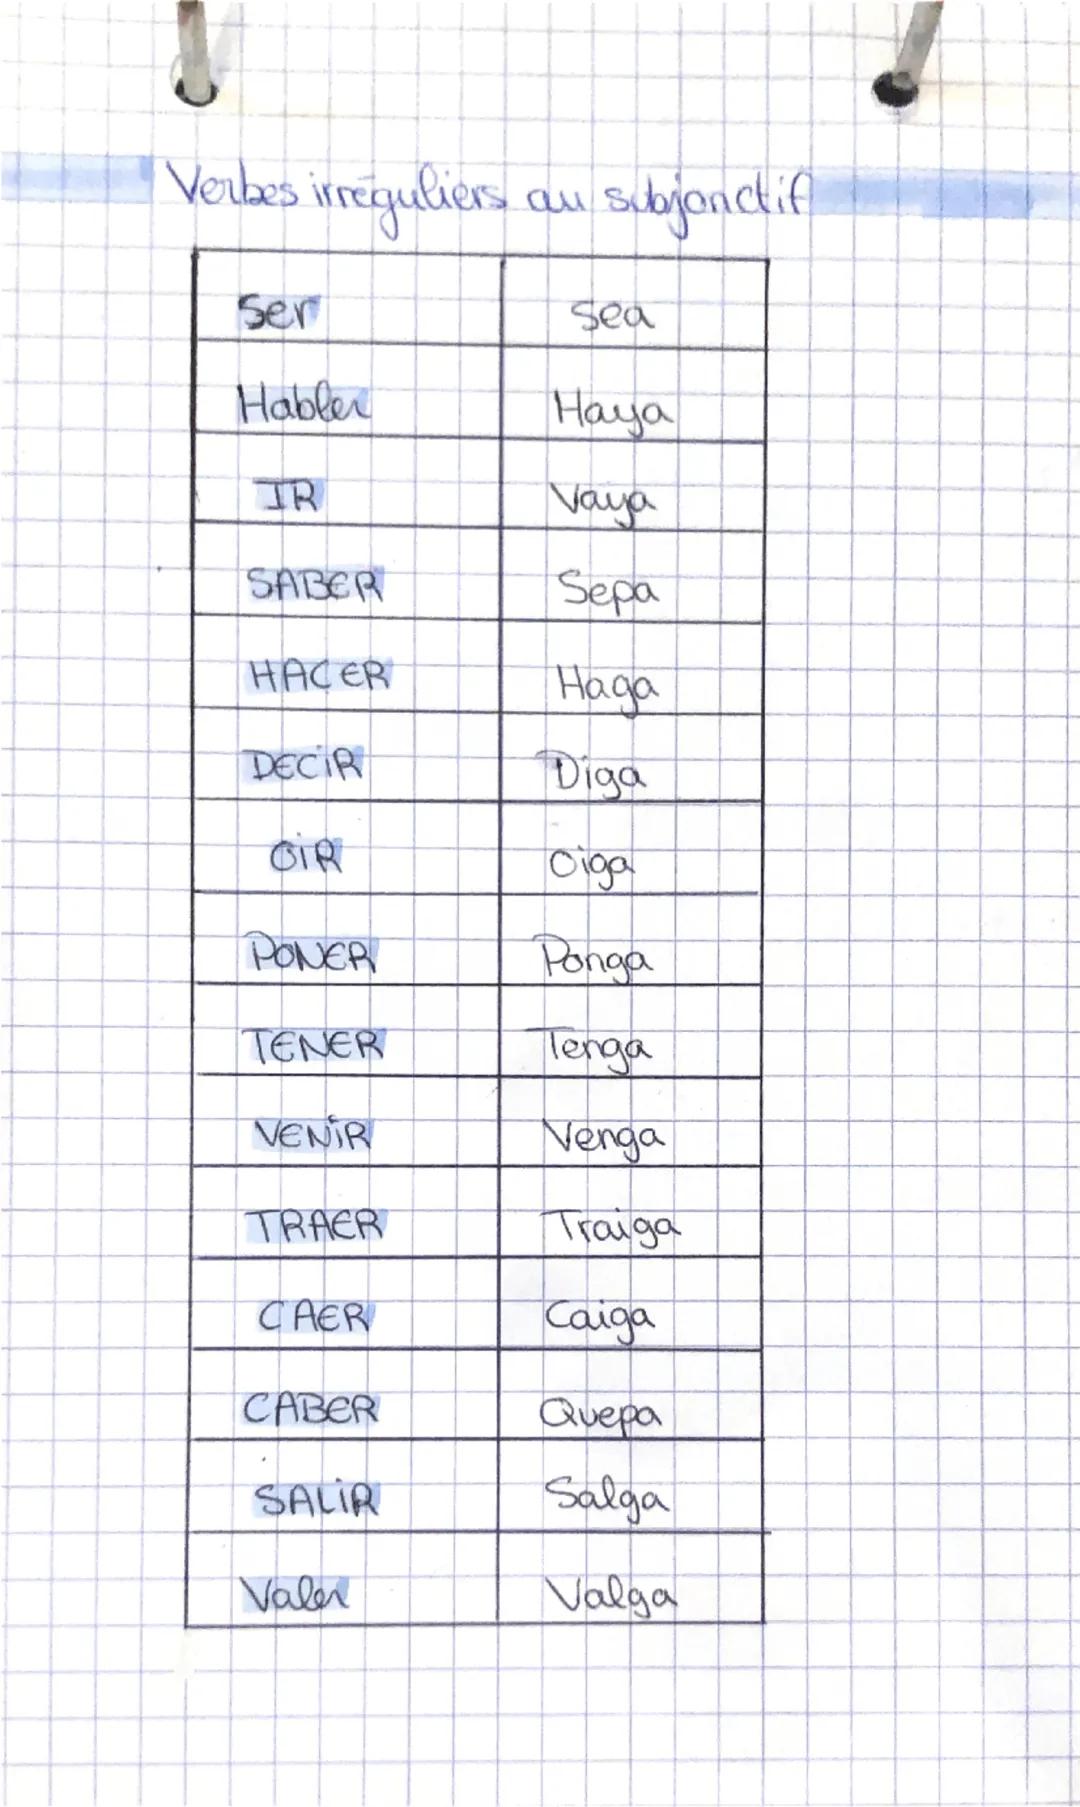 Verbes irréguliers au subjonctif
Ser sea
Habler Haya
IR Vaya
SABER Sepa
HACER Haga
DECiR Diga
OiR Oiga
PONER Ponga
TENER Tenga
VENiR Venga
TRAER Traiga
CAER Caiga
CABER Quepa
SALiR Salga
Valer Valga